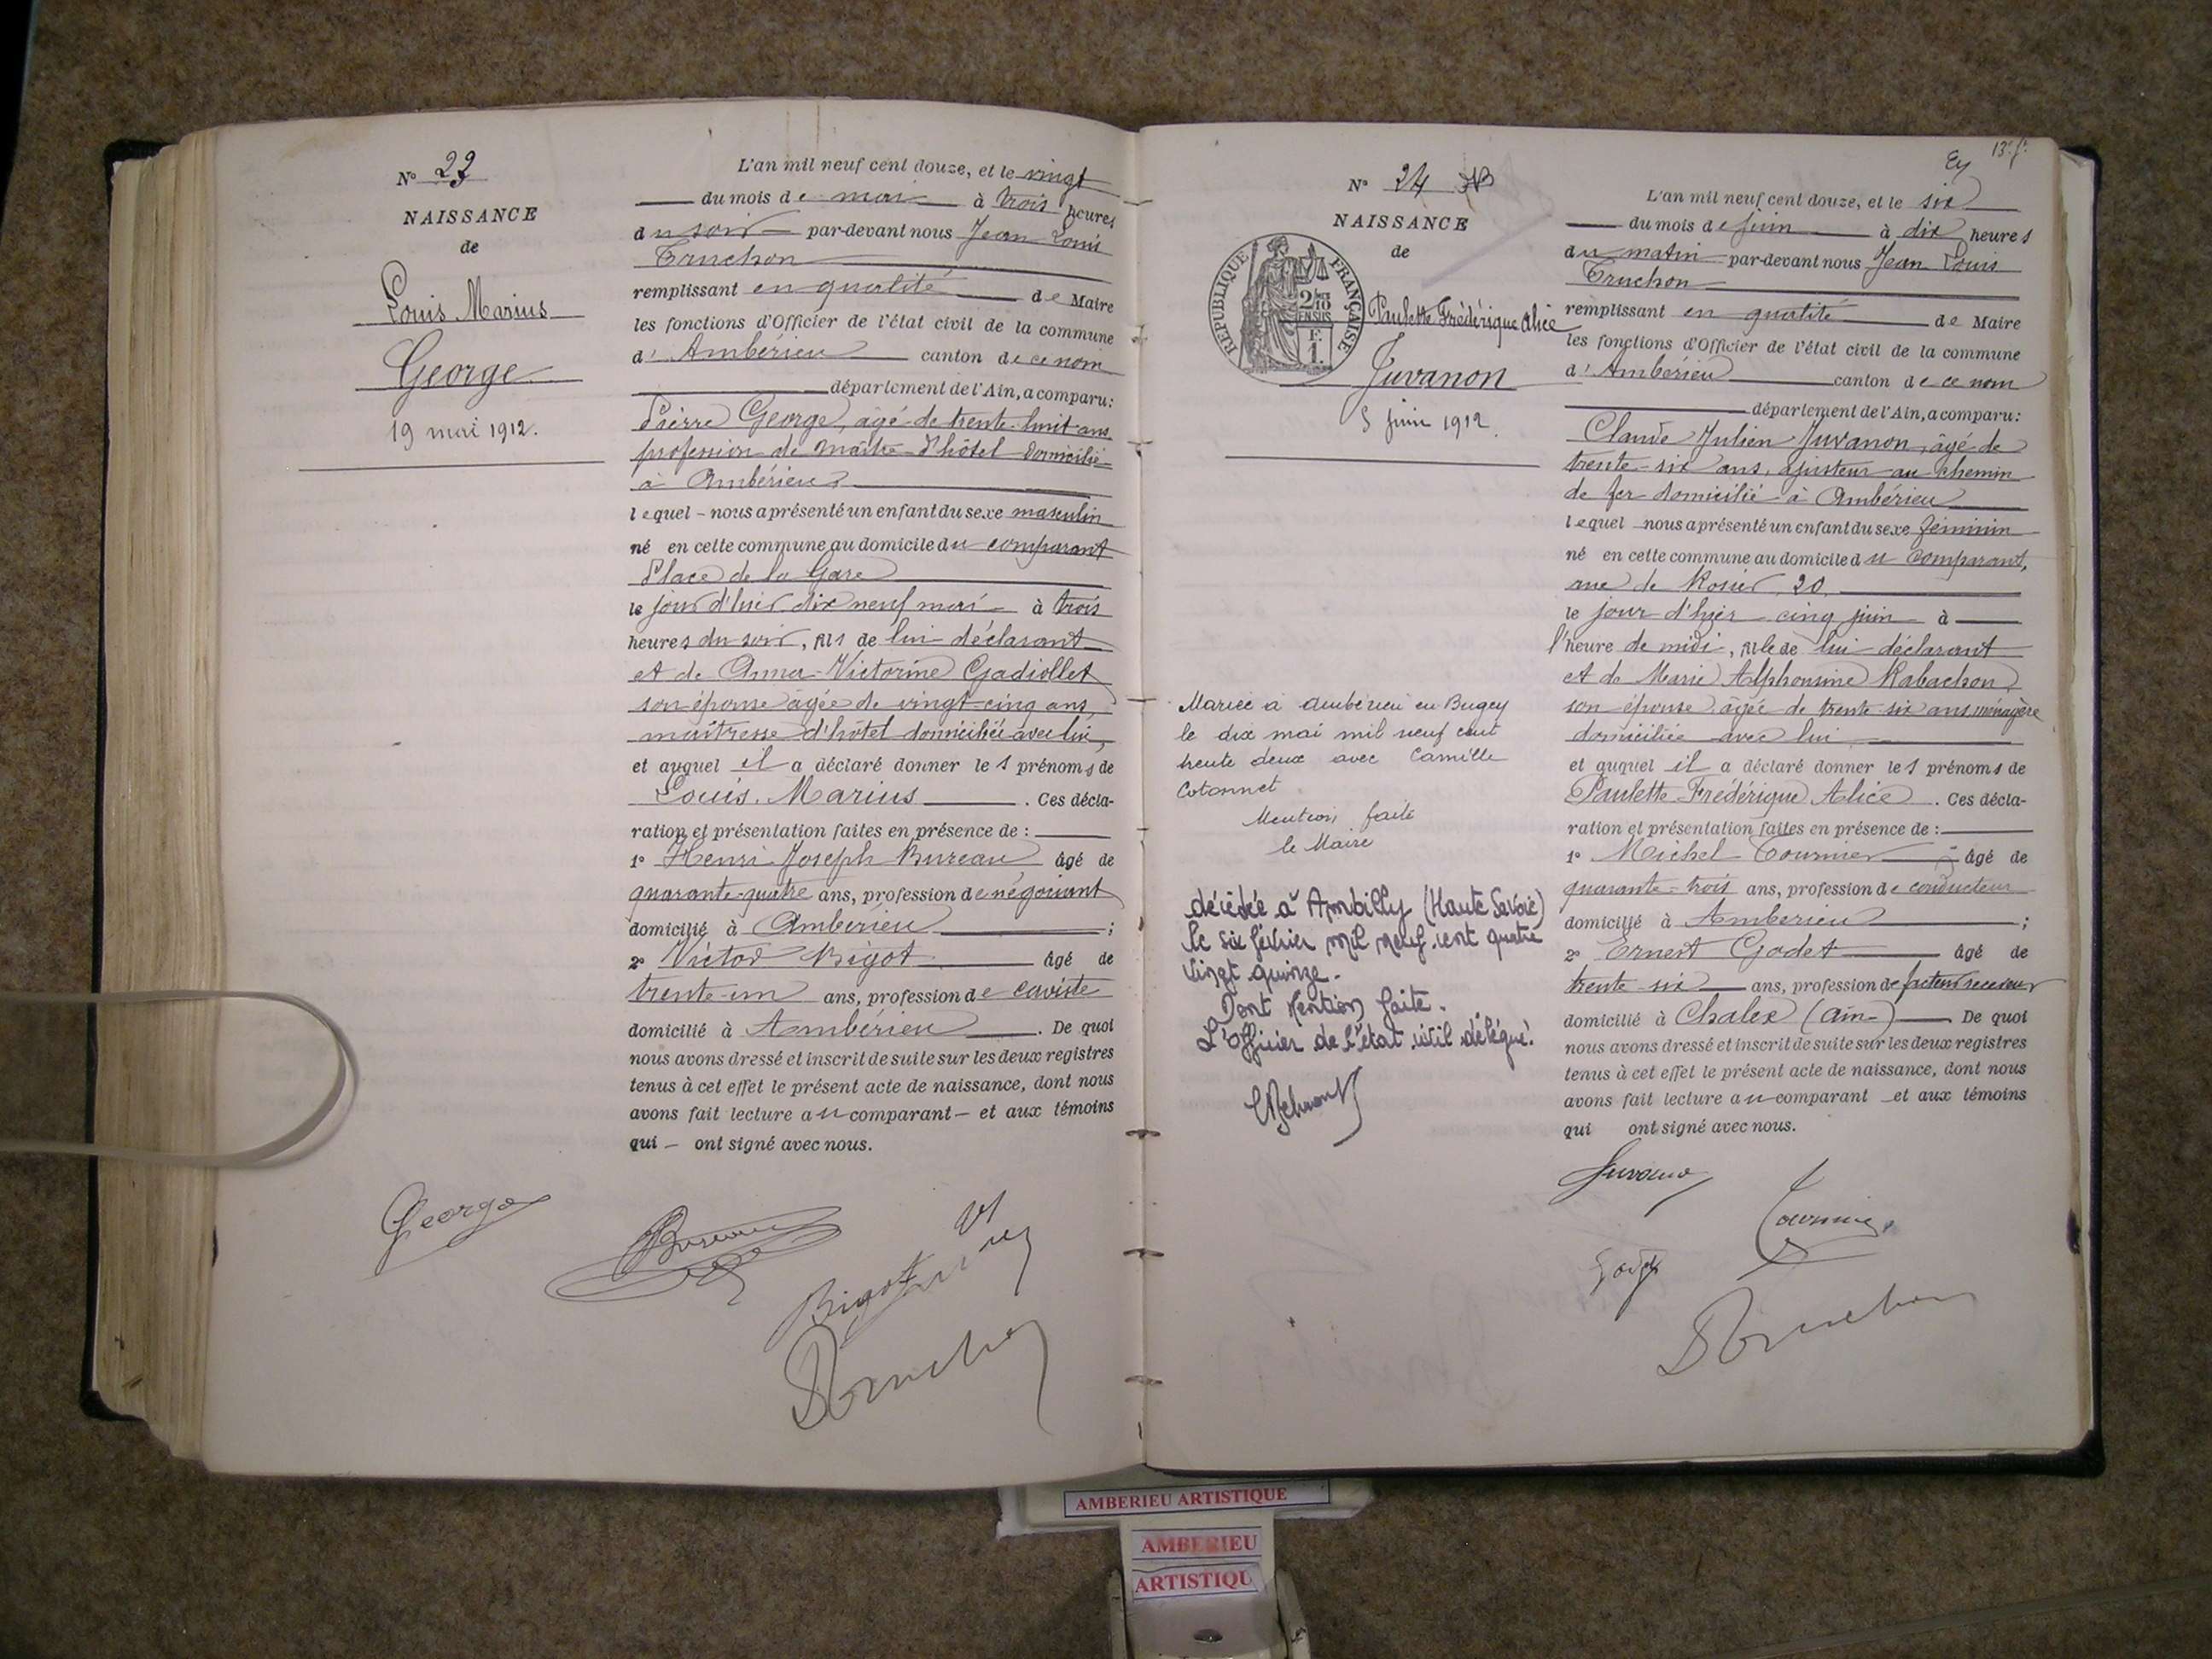 N° 23
NAISSANCE
de
Louis Marius
George
19 mai 1912.
L'an mil neuf cent douze, et le vingt
du mois de mai à trois heures
du soir par-devant nous Jean Louis
Truchon
remplissant en qualité de Maire
les fonctions d'Officier de l'état civil de la commune
d' Ambérieu canton de ce nom
département de l'Ain, a comparu:
Pierre George, âgé de trente-huit ans
profession de maître-d'hôtel domicilié
à Ambérieu
lequel - nous a présenté un enfant du sexe masculin
né en cette commune au domicile du comparant
Place de la Gare
le jour d'hier dix neuf mai à trois
heures du soir, fils de lui déclarant
et de Anna-Victorine Gadiollet
son épouse âgée de vingt-cinq ans,
maîtresse d'hôtel domiciliée avec lui,
et auquel il a déclaré donner les prénoms de
Louis. Marius. Ces décla-
ration et présentation faites en présence de :
1° Henri Joseph Bureau âgé de
quarante-quatre ans, profession de négociant
domicilié à Ambérieu ;
2° Victor Bigot âgé de
trente-un ans, profession de caviste
domicilié à Ambérieu. De quoi
nous avons dressé et inscrit de suite sur les deux registres
tenus à cet effet le présent acte de naissance, dont nous
avons fait lecture au comparant - et aux témoins
qui - ont signé avec nous.
George
Bureau
Bigot
Truchon
13e f.
N° 24
NAISSANCE
de
RÉPUBLIQUE FRANÇAISE
2/10
EN SUS
F.
1.
Paulette Frédérique Alice
Juvanon
5 juin 1912.
Mariée à Ambérieu en Bugey
le dix mai mil neuf cent
trente deux avec Camille
Cotonnet.
Mention faite
le Maire
décédée à Ambilly (Haute Savoie)
le six février mil neuf cent quatre
vingt quinze.
Dont Mention faite.
L'Officier de l'état civil délégué.
L'an mil neuf cent douze, et le six
du mois de juin à dix heures
du matin par-devant nous Jean Louis
Truchon
remplissant en qualité de Maire
les fonctions d'Officier de l'état civil de la commune
d' Ambérieu canton de ce nom
département de l'Ain, a comparu:
Claude Julien Juvanon, âgé de
trente-six ans, ajusteur au chemin
de fer domicilié à Ambérieu
lequel nous a présenté un enfant du sexe féminin
né en cette commune au domicile du comparant,
rue de Rosier 20.
le jour d'hier cinq juin à
l'heure de midi, fille de lui déclarant
et de Marie Alphonsine Rabachon,
son épouse, âgée de trente six ans, ménagère
domiciliée avec lui
et auquel il a déclaré donner les prénoms de
Paulette Frédérique Alice. Ces décla-
ration et présentation faites en présence de :
1° Michel Tournier âgé de
quarante-trois ans, profession de conducteur
domicilié à Ambérieu ;
2° Ernest Godet âgé de
trente six ans, profession de facteur receveur
domicilié à Chalex (Ain) De quoi
nous avons dressé et inscrit de suite sur les deux registres
tenus à cet effet le présent acte de naissance, dont nous
avons fait lecture au comparant et aux témoins
qui ont signé avec nous.
Juvanon
Tournier
Godet
Truchon
AMBERIEU ARTISTIQUE
AMBERIEU
ARTISTIQU